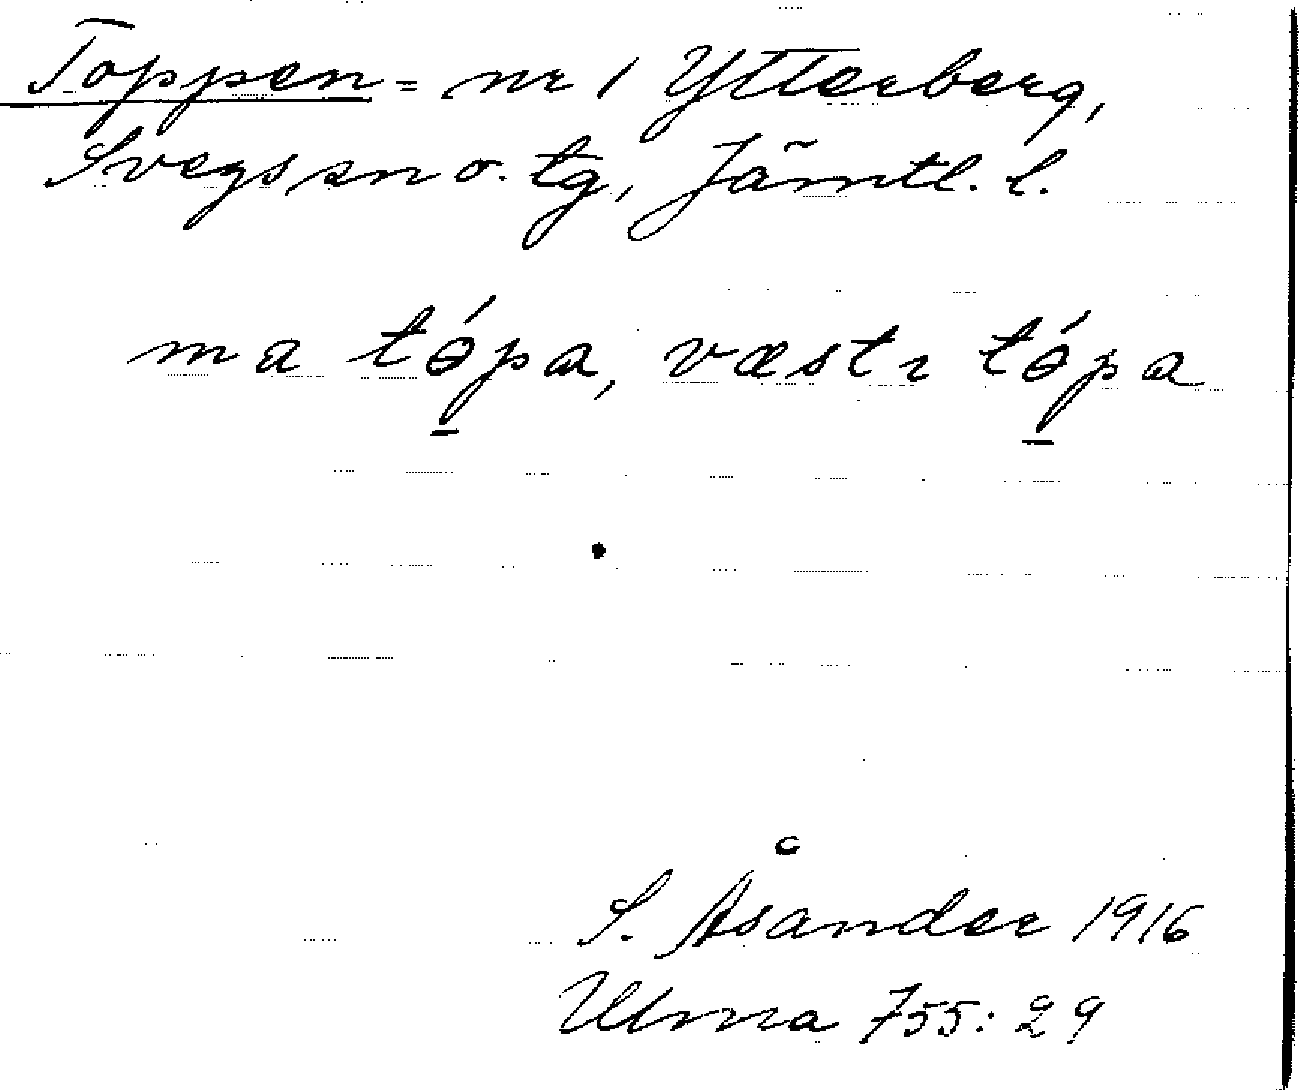 Toppen = nr 1 Ytterberg,
Svegs sn o. tg, Jämtl. l.
ma tǿpa, væstr tǿpa
S. Åsander 1916
Ulma 755:29